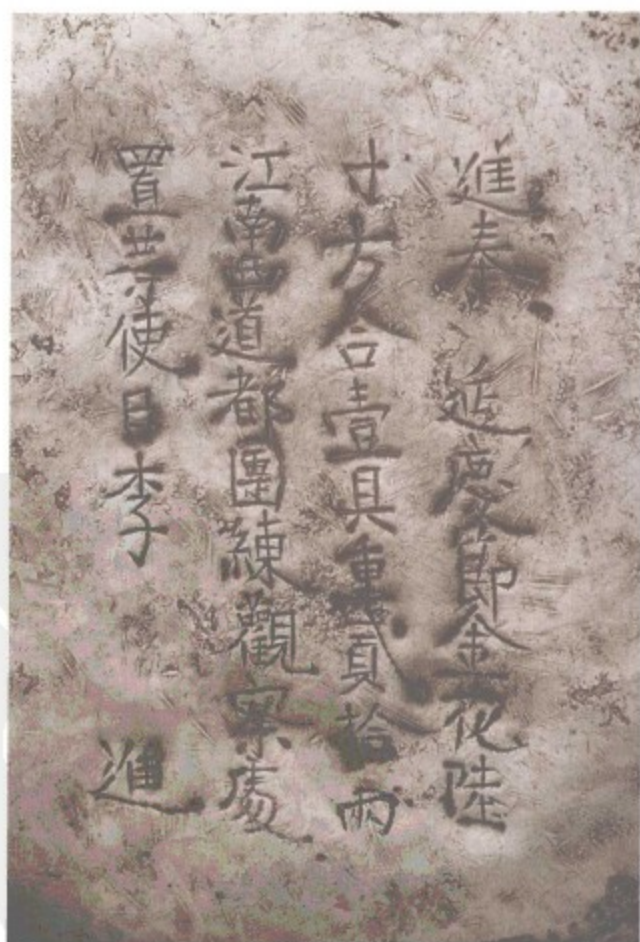 進奉 延慶節金花陸
寸方合壹具重貳拾兩
江南西道都團練觀察處
置等使臣李 進